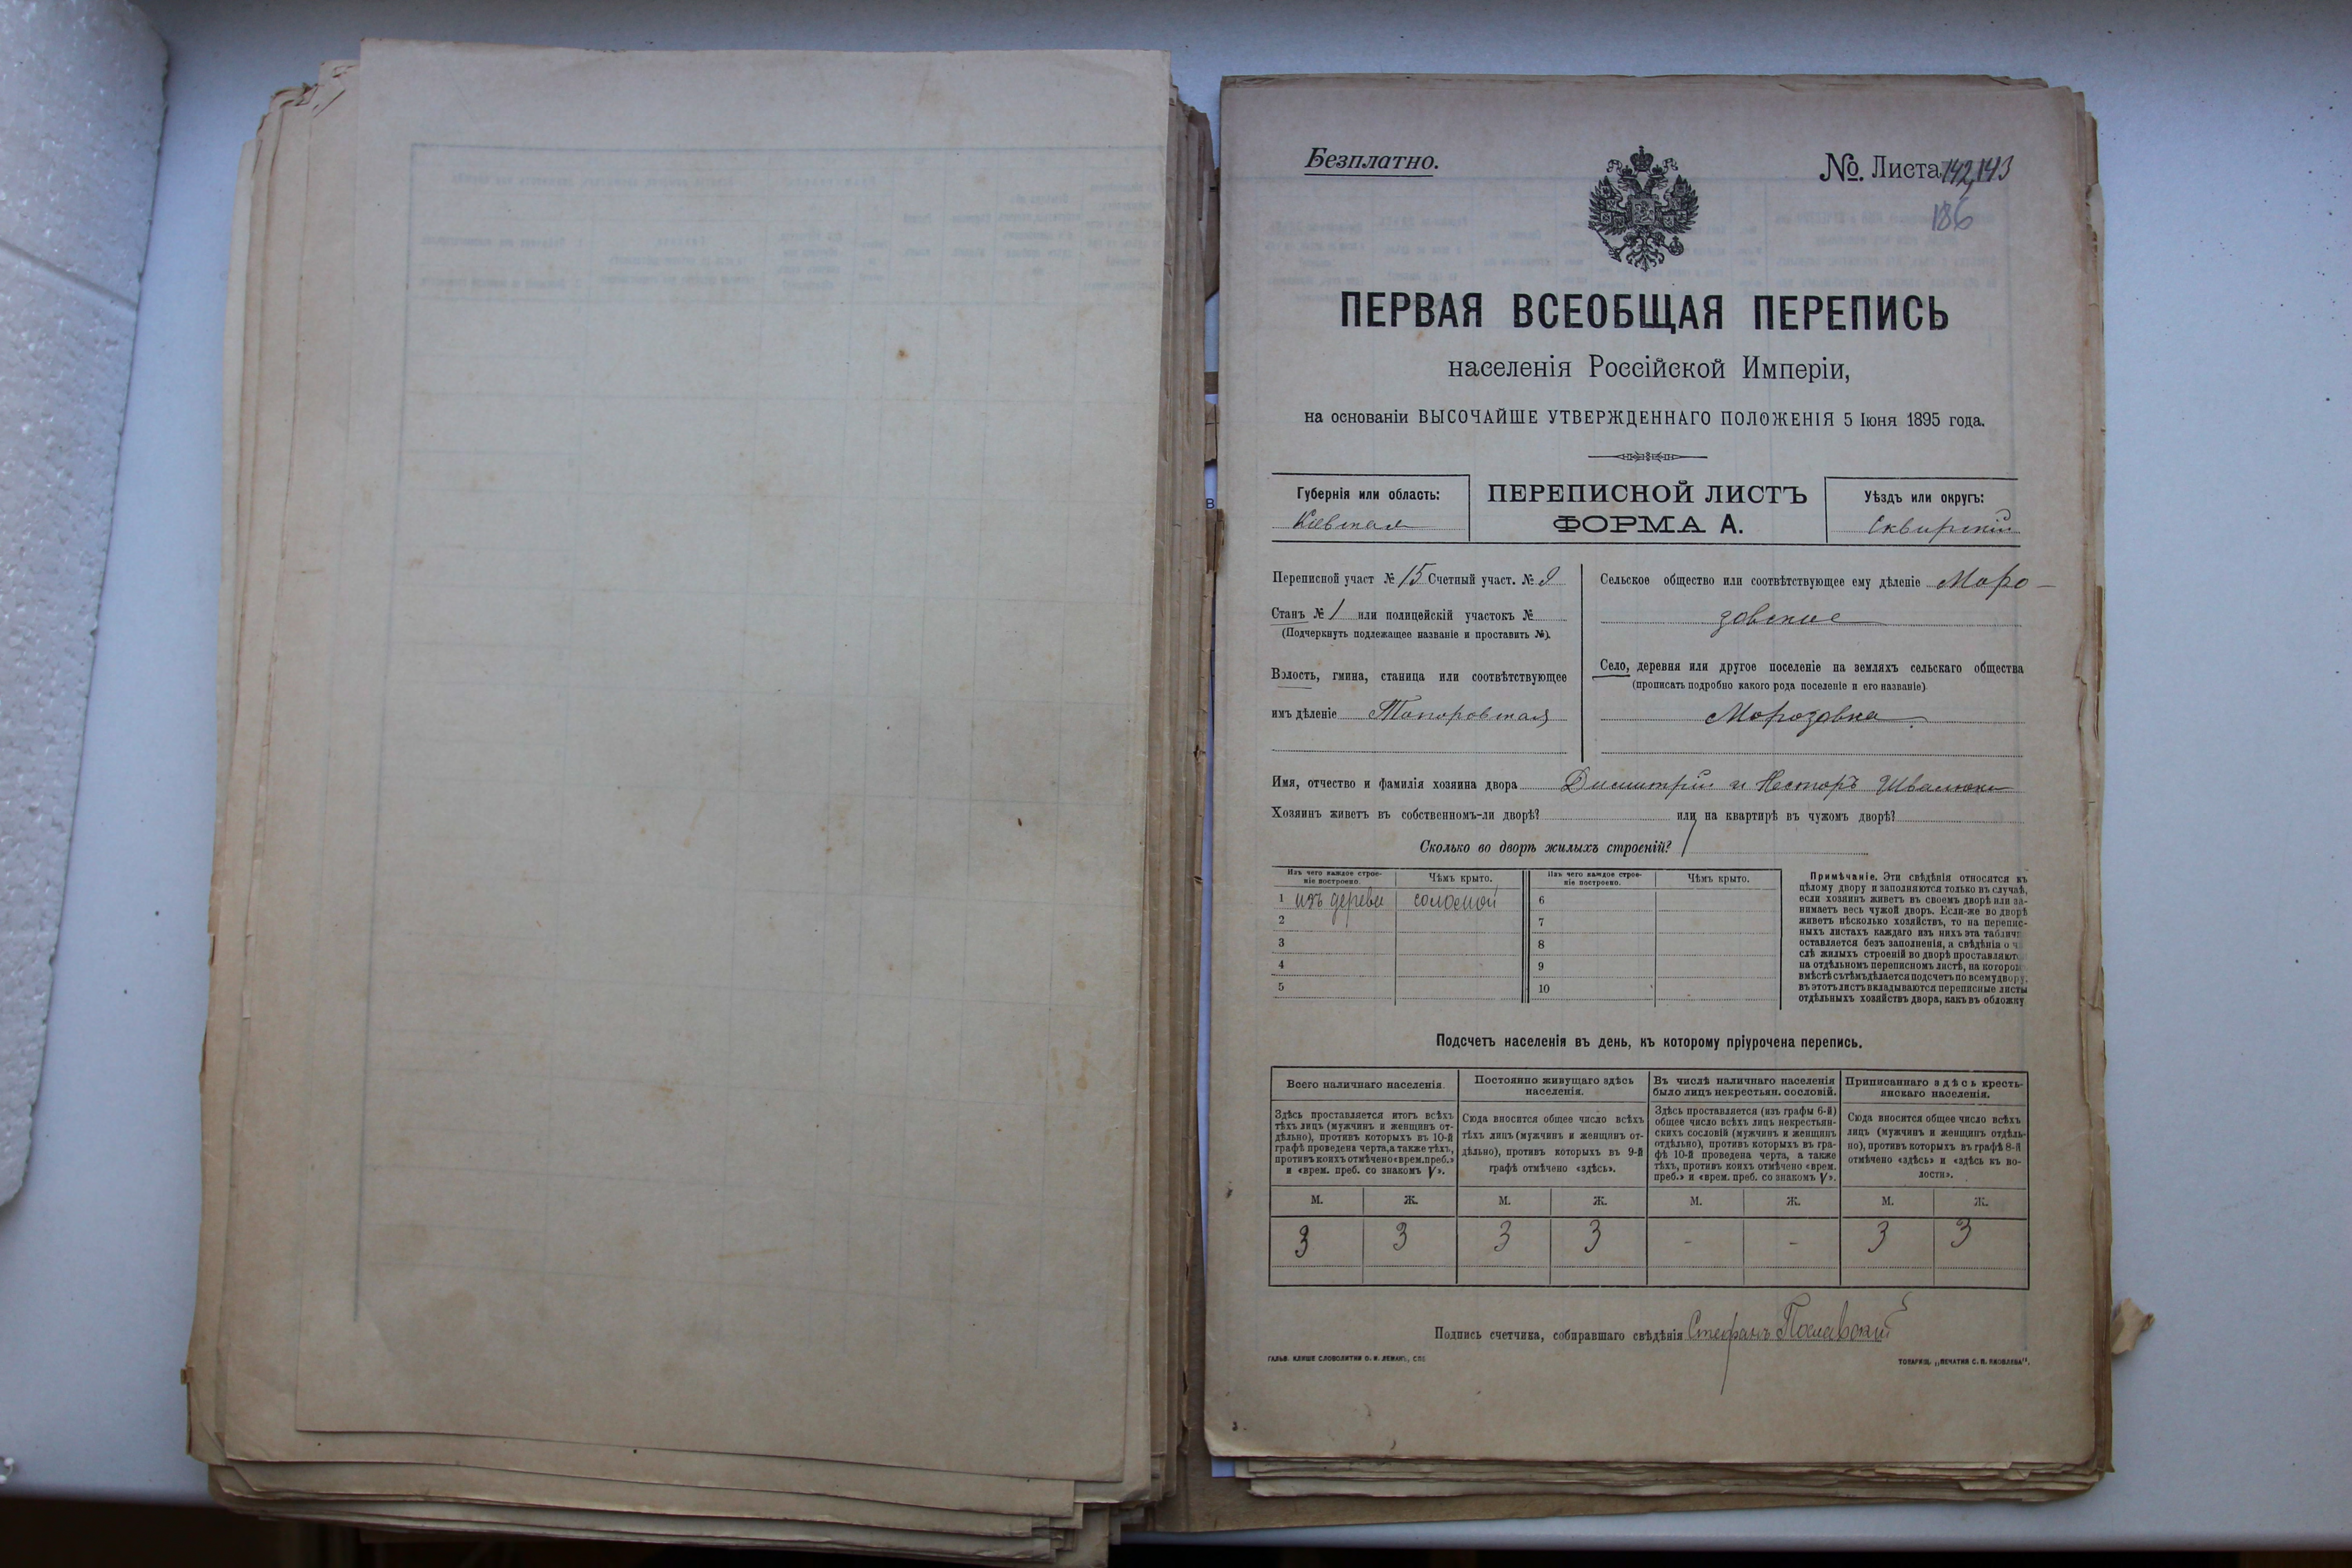 Безплатно.
№. Листа 142,143
186
ПЕРВАЯ ВСЕОБЩАЯ ПЕРЕПИСЬ
населенія Россійской Имперіи,
на основаніи ВЫСОЧАЙШЕ УТВЕРЖДЕННАГО ПОЛОЖЕНІЯ 5 Іюня 1895 года.
Губернія или область:
Кіевская
ПЕРЕПИСНОЙ ЛИСТЪ
ФОРМА А.
Уѣздъ или округъ:
Сквирскій
Переписной участ № 15 Счетный участ. №
Станъ № 1 или полицейскій участокъ №
(Подчеркнуть подлежащее названіе и проставить №).
Волость, гмина, станица или соотвѣтствующее
имъ дѣленіе Топоровская
Сельское общество или соотвѣтствующее ему дѣленіе Моро-
зовское
Село, деревня или другое поселеніе на земляхъ сельскаго общества
(прописать подробно какого рода поселеніе и его названіе)
Морозовка.
Имя, отчество и фамилія хозяина двора Димитрій и Несторъ Швалюки
Хозяинъ живетъ въ собственномъ-ли дворѣ? или на квартирѣ въ чужомъ дворѣ?
Сколько во дворѣ жилыхъ строеній? 1
Изъ чего каждое строе-
ніе построено.
Чѣмъ крыто.
Изъ чего каждое строе-
ніе построено.
Чѣмъ крыто.
1 изъ дерева соломой 6
2 7
3 8
4 9
5 10
Примѣчаніе. Эти свѣдѣнія относятся къ
цѣлому двору и заполняются только въ случаѣ,
если хозяинъ живетъ въ своемъ дворѣ или за-
нимаетъ весь чужой дворъ. Если-же во дворѣ
живетъ нѣсколько хозяйствъ, то на перепис-
ныхъ листахъ каждаго изъ нихъ эта таблич
оставляется безъ заполненія, а свѣдѣнія о ч
слѣ жилыхъ строеній во дворѣ проставляют
на отдѣльномъ переписномъ листѣ, на которо
вмѣстѣ съ тѣмъ дѣлается подсчетъ по всему двору;
въ этотъ листъ вкладываются переписные листы
отдѣльныхъ хозяйствъ двора, какъ въ обложку
Подсчетъ населенія въ день, къ которому пріурочена перепись.
Всего наличнаго населенія.
Здѣсь проставляется итогъ всѣхъ
тѣхъ лицъ (мужчинъ и женщинъ от-
дѣльно), противъ которыхъ въ 10-й
графѣ проведена черта, а также тѣхъ,
противъ коихъ отмѣчено «врем. преб.»
и «врем. преб. со знакомъ V».
Постоянно живущаго здѣсь
населенія.
Сюда вносится общее число всѣхъ
тѣхъ лицъ (мужчинъ и женщинъ от-
дѣльно), противъ которыхъ въ 9-й
графѣ отмѣчено «здѣсь».
Въ числѣ наличнаго населенія
было лицъ некрестьян. сословій.
Здѣсь проставляется (изъ графы 6-й)
общее число всѣхъ лицъ некрестьян-
скихъ сословій (мужчинъ и женщинъ
отдѣльно), противъ которыхъ въ гра-
фѣ 10-й проведена черта, а также
тѣхъ, противъ коихъ отмѣчено «врем.
преб.» и «врем. преб. со знакомъ V».
Приписаннаго здѣсь кресть-
янскаго населенія.
Сюда вносится общее число всѣхъ
лицъ (мужчинъ и женщинъ отдѣль-
но), противъ которыхъ въ графѣ 8-й
отмѣчено «здѣсь» и «здѣсь къ во-
лости».
М. Ж. М. Ж. М. Ж. М. Ж.
3 3 3 3 - - 3 3
Подпись счетчика, собиравшаго свѣдѣнія Стефанъ Пославскій
ГАЛЬВ. КЛИШЕ СЛОВОЛИТНИ О. И. ЛЕМАНЪ, СПБ
ТОВАРИЩ. „ПЕЧАТНЯ С. П. ЯКОВЛЕВА".